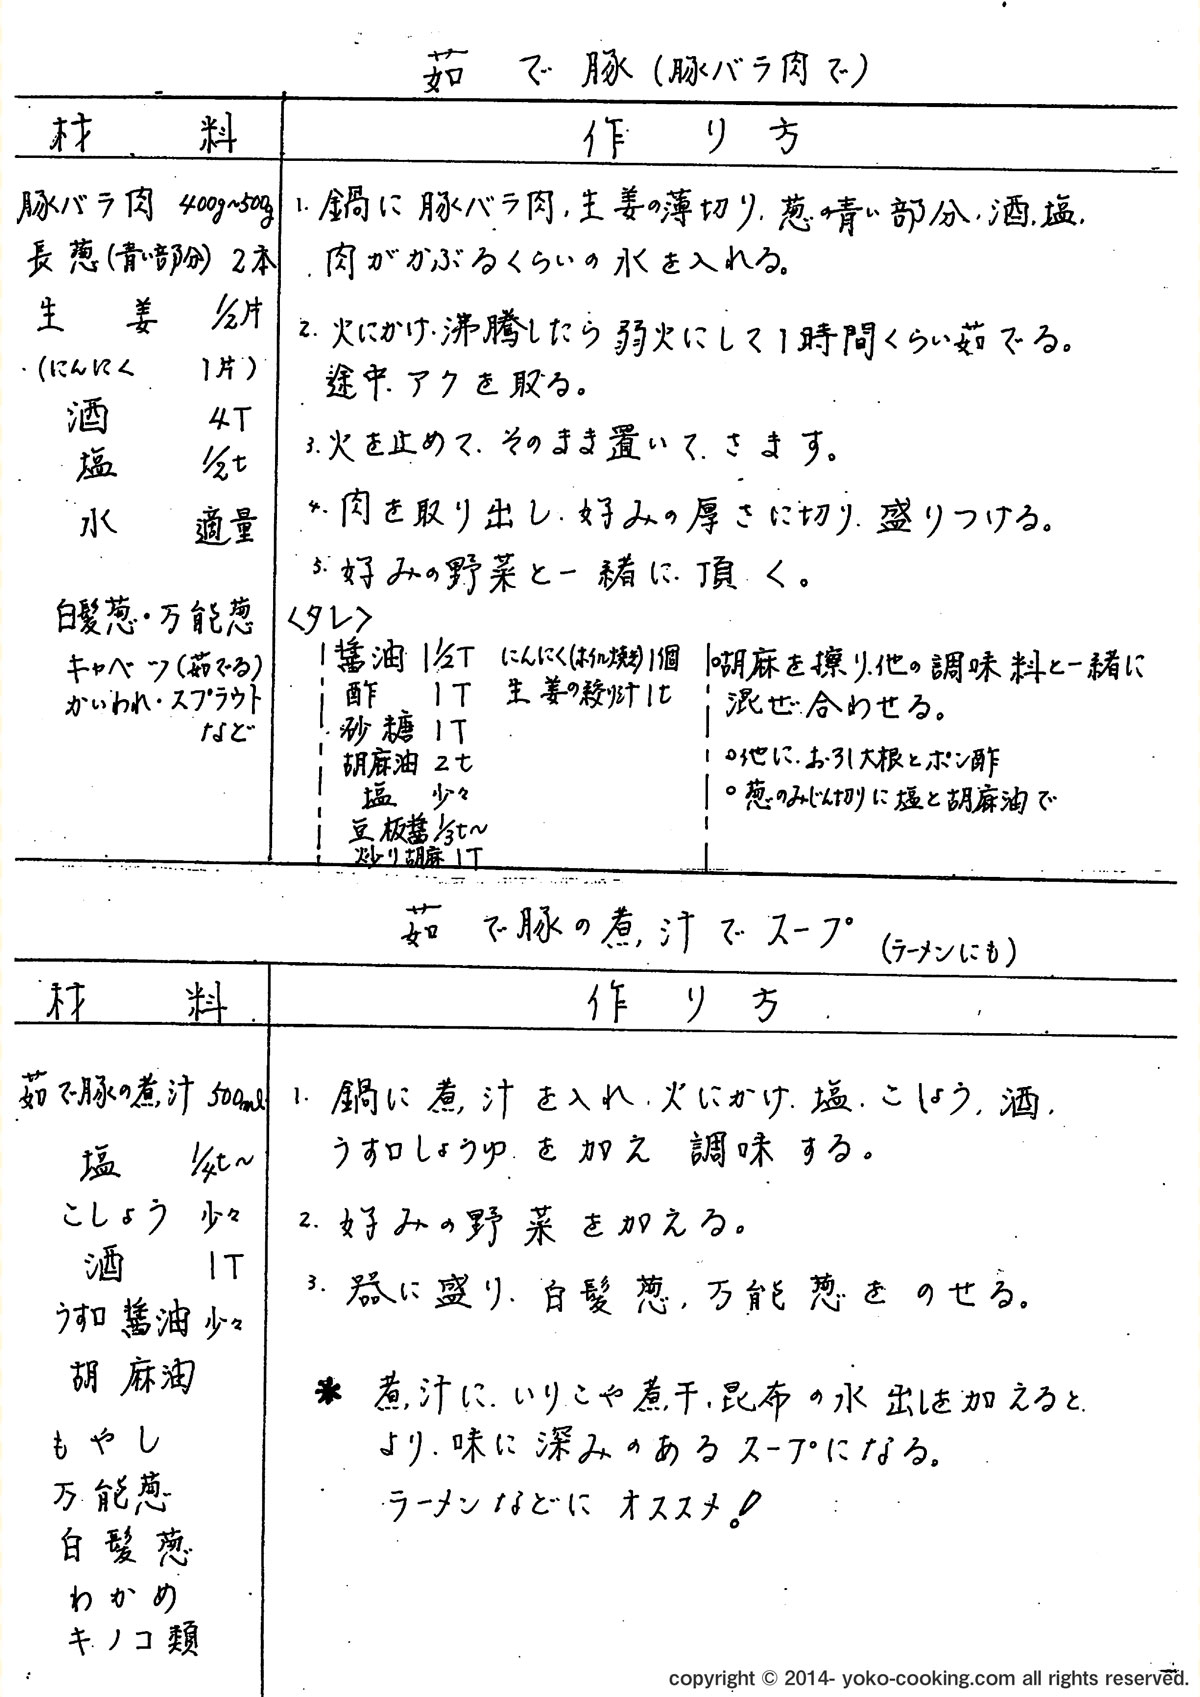 茹で豚(豚バラ肉で)
材料
作り方
豚バラ肉 400g~500g
長葱(青い部分) 2本
生姜 1/2片
(にんにく 1片)
酒 4T
塩 1/2t
水 適量
白髪葱・万能葱
キャベツ(茹でる)
かいわれ・スプラウト
など
1. 鍋に豚バラ肉、生姜の薄切り、葱の青い部分、酒、塩、
肉がかぶるくらいの水を入れる。
2. 火にかけ、沸騰したら弱火にして1時間くらい茹でる。
途中、アクを取る。
3. 火を止めて、そのまま置いて、さます。
4. 肉を取り出し、好みの厚さに切り、盛りつける。
5. 好みの野菜と一緒に、頂く。
<タレ>
醤油 1 1/2T
酢 1T
砂糖 1T
胡麻油 2t
塩 少々
豆板醤 1/3t~
炒り胡麻 1T
にんにく(ホイル焼き)1個
生姜の絞り汁 1t
○胡麻を擦り、他の調味料と一緒に
混ぜ合わせる。
○他に、おろし大根とポン酢
○葱のみじん切りに塩と胡麻油で
茹で豚の煮汁でスープ (ラーメンにも)
材料
作り方
茹で豚の煮汁 500ml
塩 1/4t~
こしょう 少々
酒 1T
うす口醤油 少々
胡麻油
もやし
万能葱
白髪葱
わかめ
キノコ類
1. 鍋に煮汁を入れ、火にかけ、塩、こしょう、酒、
うす口しょうゆを加え調味する。
2. 好みの野菜を加える。
3. 器に盛り、白髪葱、万能葱をのせる。
* 煮汁に、いりこや煮干、昆布の水出しを加えると、
より、味に深みのあるスープになる。
ラーメンなどにオススメ!
copyright © 2014- yoko-cooking.com all rights reserved.